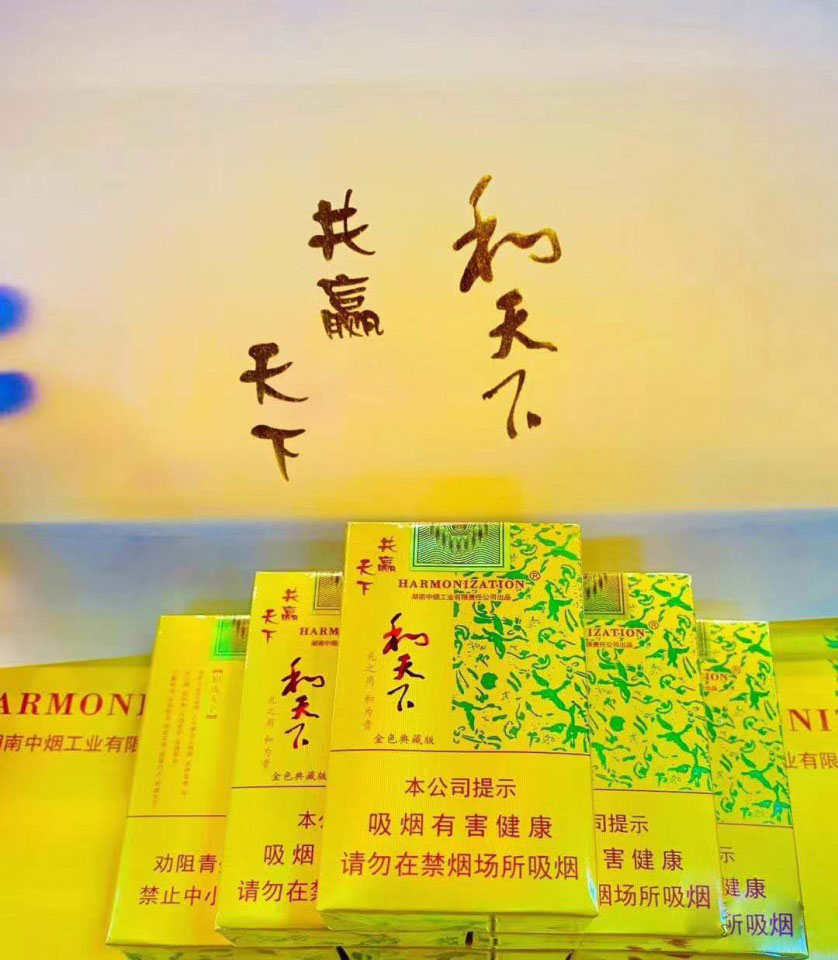 和天下
共赢
天下
共赢
天下
HARMONIZATION®
湖南中烟工业有限责任公司出品
和天下
礼之用 和为贵
金色典藏版
本公司提示
吸烟有害健康
请勿在禁烟场所吸烟
共赢
天下
HARM
湖南中烟
和天下
礼之用 和为贵
金色典藏版
本
吸烟
请勿在禁
劝阻青
禁止中小
IZATION®
任公司出品
司提示
害健康
烟场所吸烟
ION®
示
健康
所吸烟
ARMONI
南中烟工业有限
NI
业有限